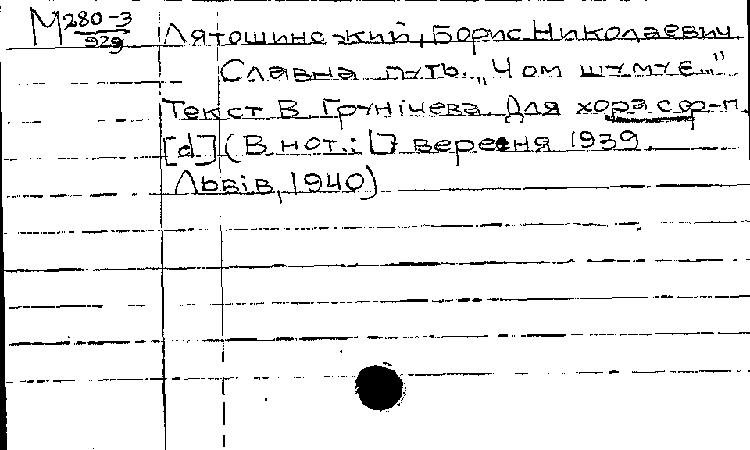 М 280-3
929
Лятошинский, Борис Николаевич
Славна путь. „Чом шумує..."
Текст В. Грунічева. Для хора с ф-п.
[d] (В нот.: 17 вересня 1939.
Львів, 1940)